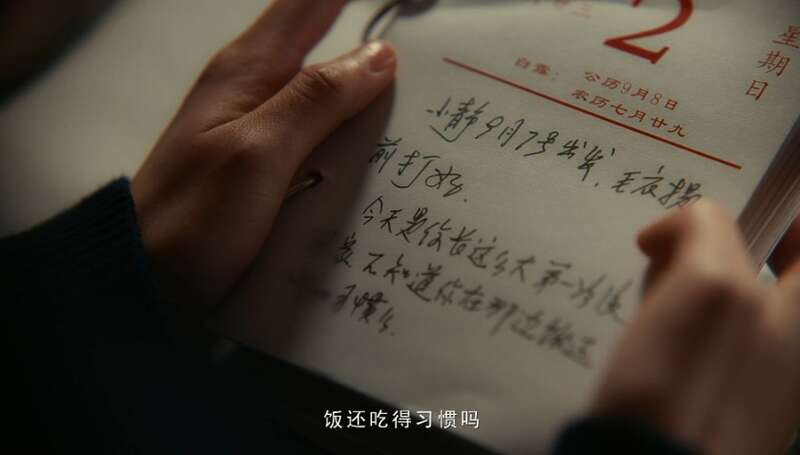 2
星期日
白露: 公历9月8日
农历七月廿九
小静9月7号出发,毛衣提
前打好.
今天是你长这么大第一次没
不知道你在那边饭还
习惯么.
饭还吃得习惯吗